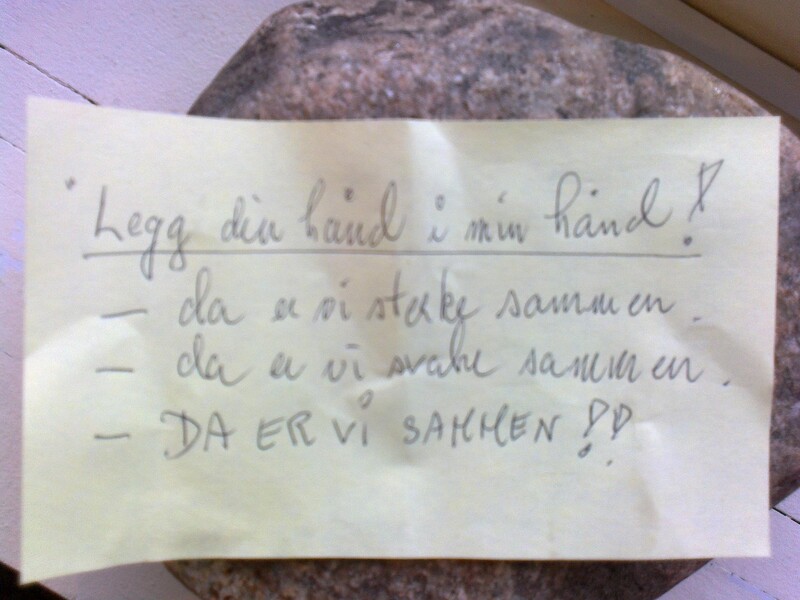 Legg din hånd i min hånd!
– da er vi sterke sammen.
– da er vi svake sammen.
– DA ER Vi SAMMEN!!